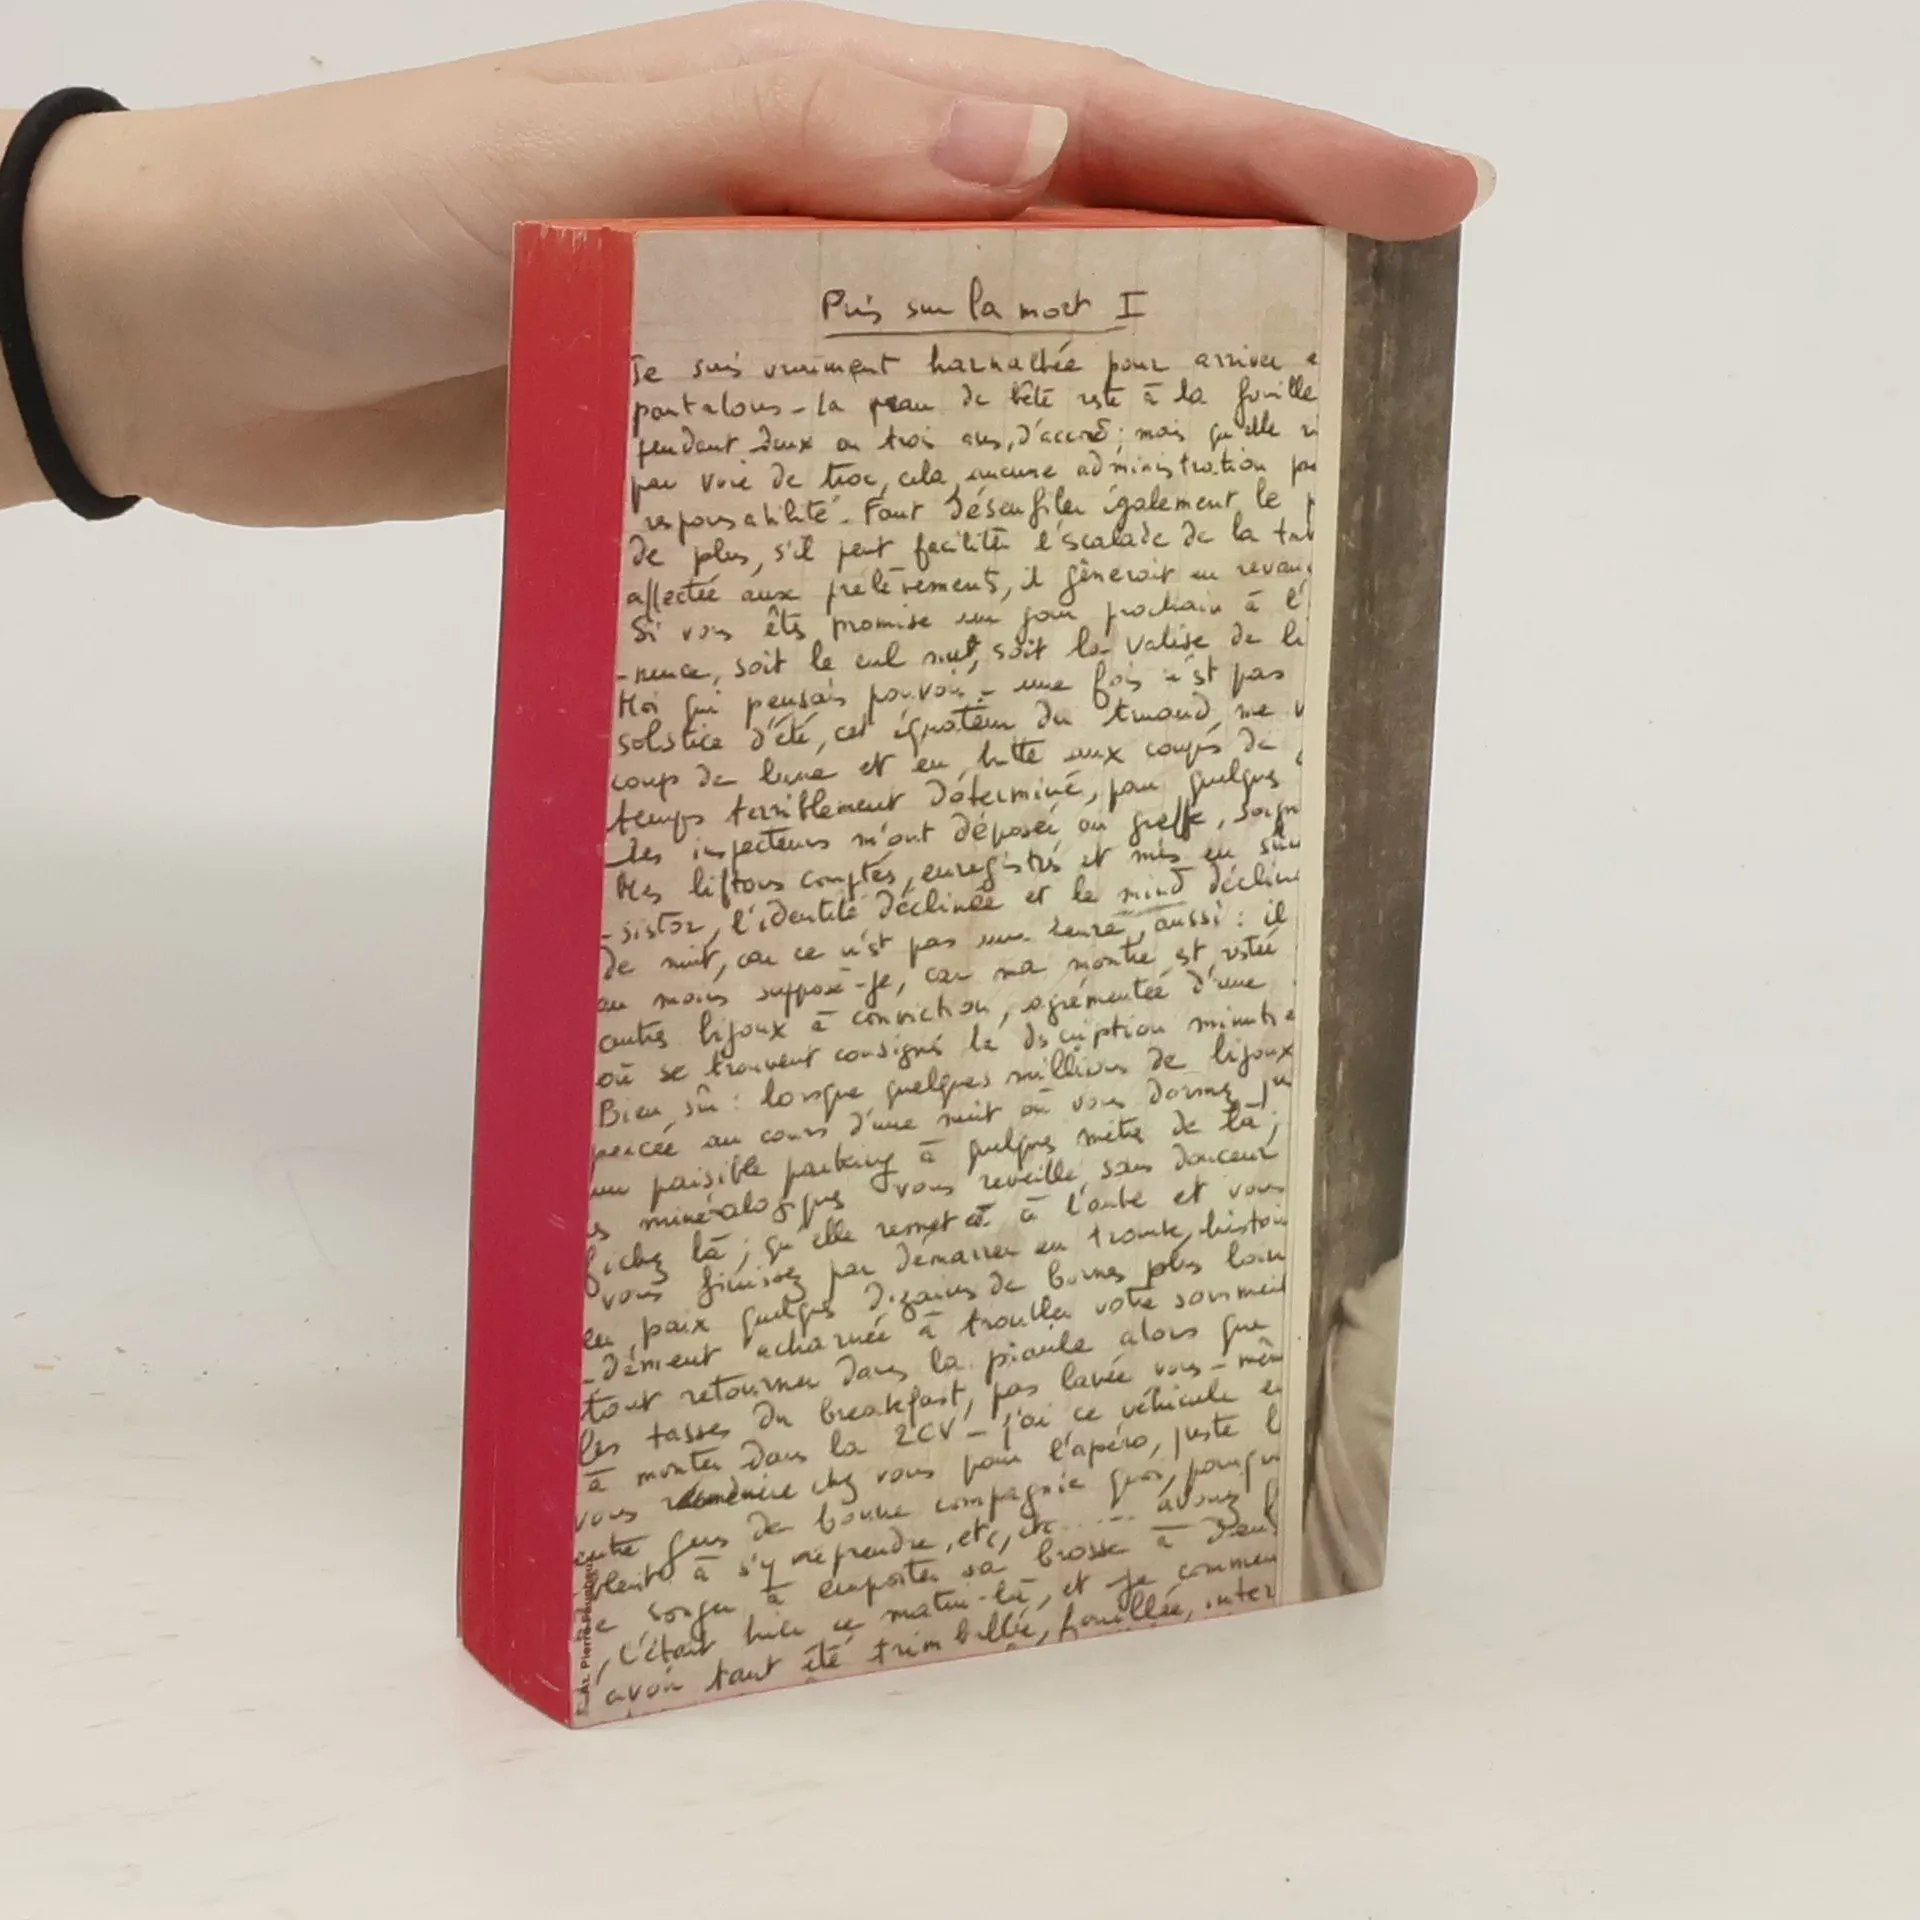 Pris sur la mort I
Je suis vraiment harnachée pour arriver e
pantalons - la peau de bête reste à la fouille
pendant deux ou trois ans, d'accord ; mais qu'elle
par voie de troc, cela, aucune administration
responsabilité. Faut désenfiler également le
De plus, s'il peut faciliter l'escalade de la
affectée aux prélèvements, il gênerait en
Si vous êtes promise un jour prochain à l'
soit le cul nu, soit la valise de
Moi qui pensais pouvoir - une fois n'est pas
solstice d'été, cet du truand, me v
coup de lune et en butte aux coups de
temps terriblement déterminé, pour quelques
Les inspecteurs m'ont déposée au greffe,
Mes biftons comptés, enregistrés et mis en
-sistor, l'identité déclinée et le mind
de nuit, car ce n'est pas une aussi : il
au moins suppose-je, car ma montre est restée
autres bijoux à conviction, agrémentée d'une
où se trouvent consignés la description
Bien sûr : lorsque quelques millions de bijoux
percée au cours d'une nuit où vous dormez
un paisible parking à quelques mètres de là ;
minéralogiques vous réveille sans douceur
fichez là ; qu'elle remet à l'aube et vous
vous finissez par démarrer en trombe, histoire
en paix quelques dizaines de bornes plus loin
-dément acharnée à troubler votre sommeil
tout retourner dans la piaule alors que
les tasses du breakfast, pas lavée vous-mêm
à monter dans la 2CV - j'ai ce véhicule e
vous ramènerie chez vous pour l'apéro, juste
entre gens de bonne compagnie quoi,
à s'y méprendre, etc, etc...... avouez
songer à emporter sa brosse à
, c'était hier ce matin-là, et je commen
avoir tant été trimballée, fouillée, inter